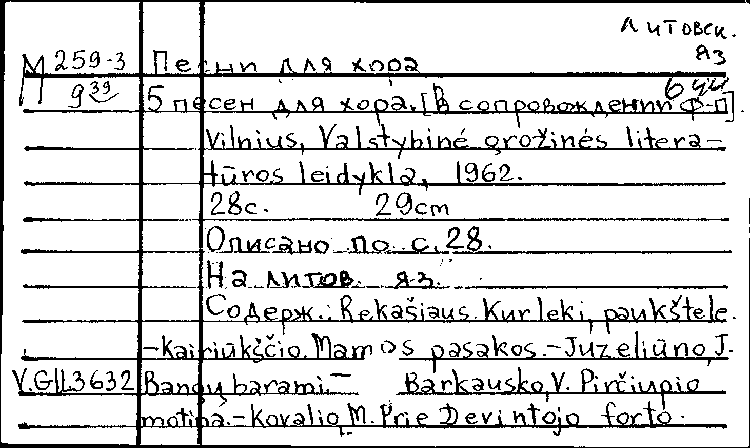 Литовск.
яз
М 259-3 Песни для хора
9 39 5 песен для хора. [В сопровождении Ф-п].
Vilnius, Valstybinė grožinės litera-
tūros leidykla, 1962.
28с. 29cm
Описано по с. 28.
На литов. яз.
Содерж.: Rekašiaus. Kur leki, paukštele.
-Kairiūkščio. Mamos pasakos. - Juzeliūno, J.
V.GIL3632 Bangų barami. - Barkausko, V. Pirčiupio
motina. - Kovalio, M. Prie Devintojo forto.